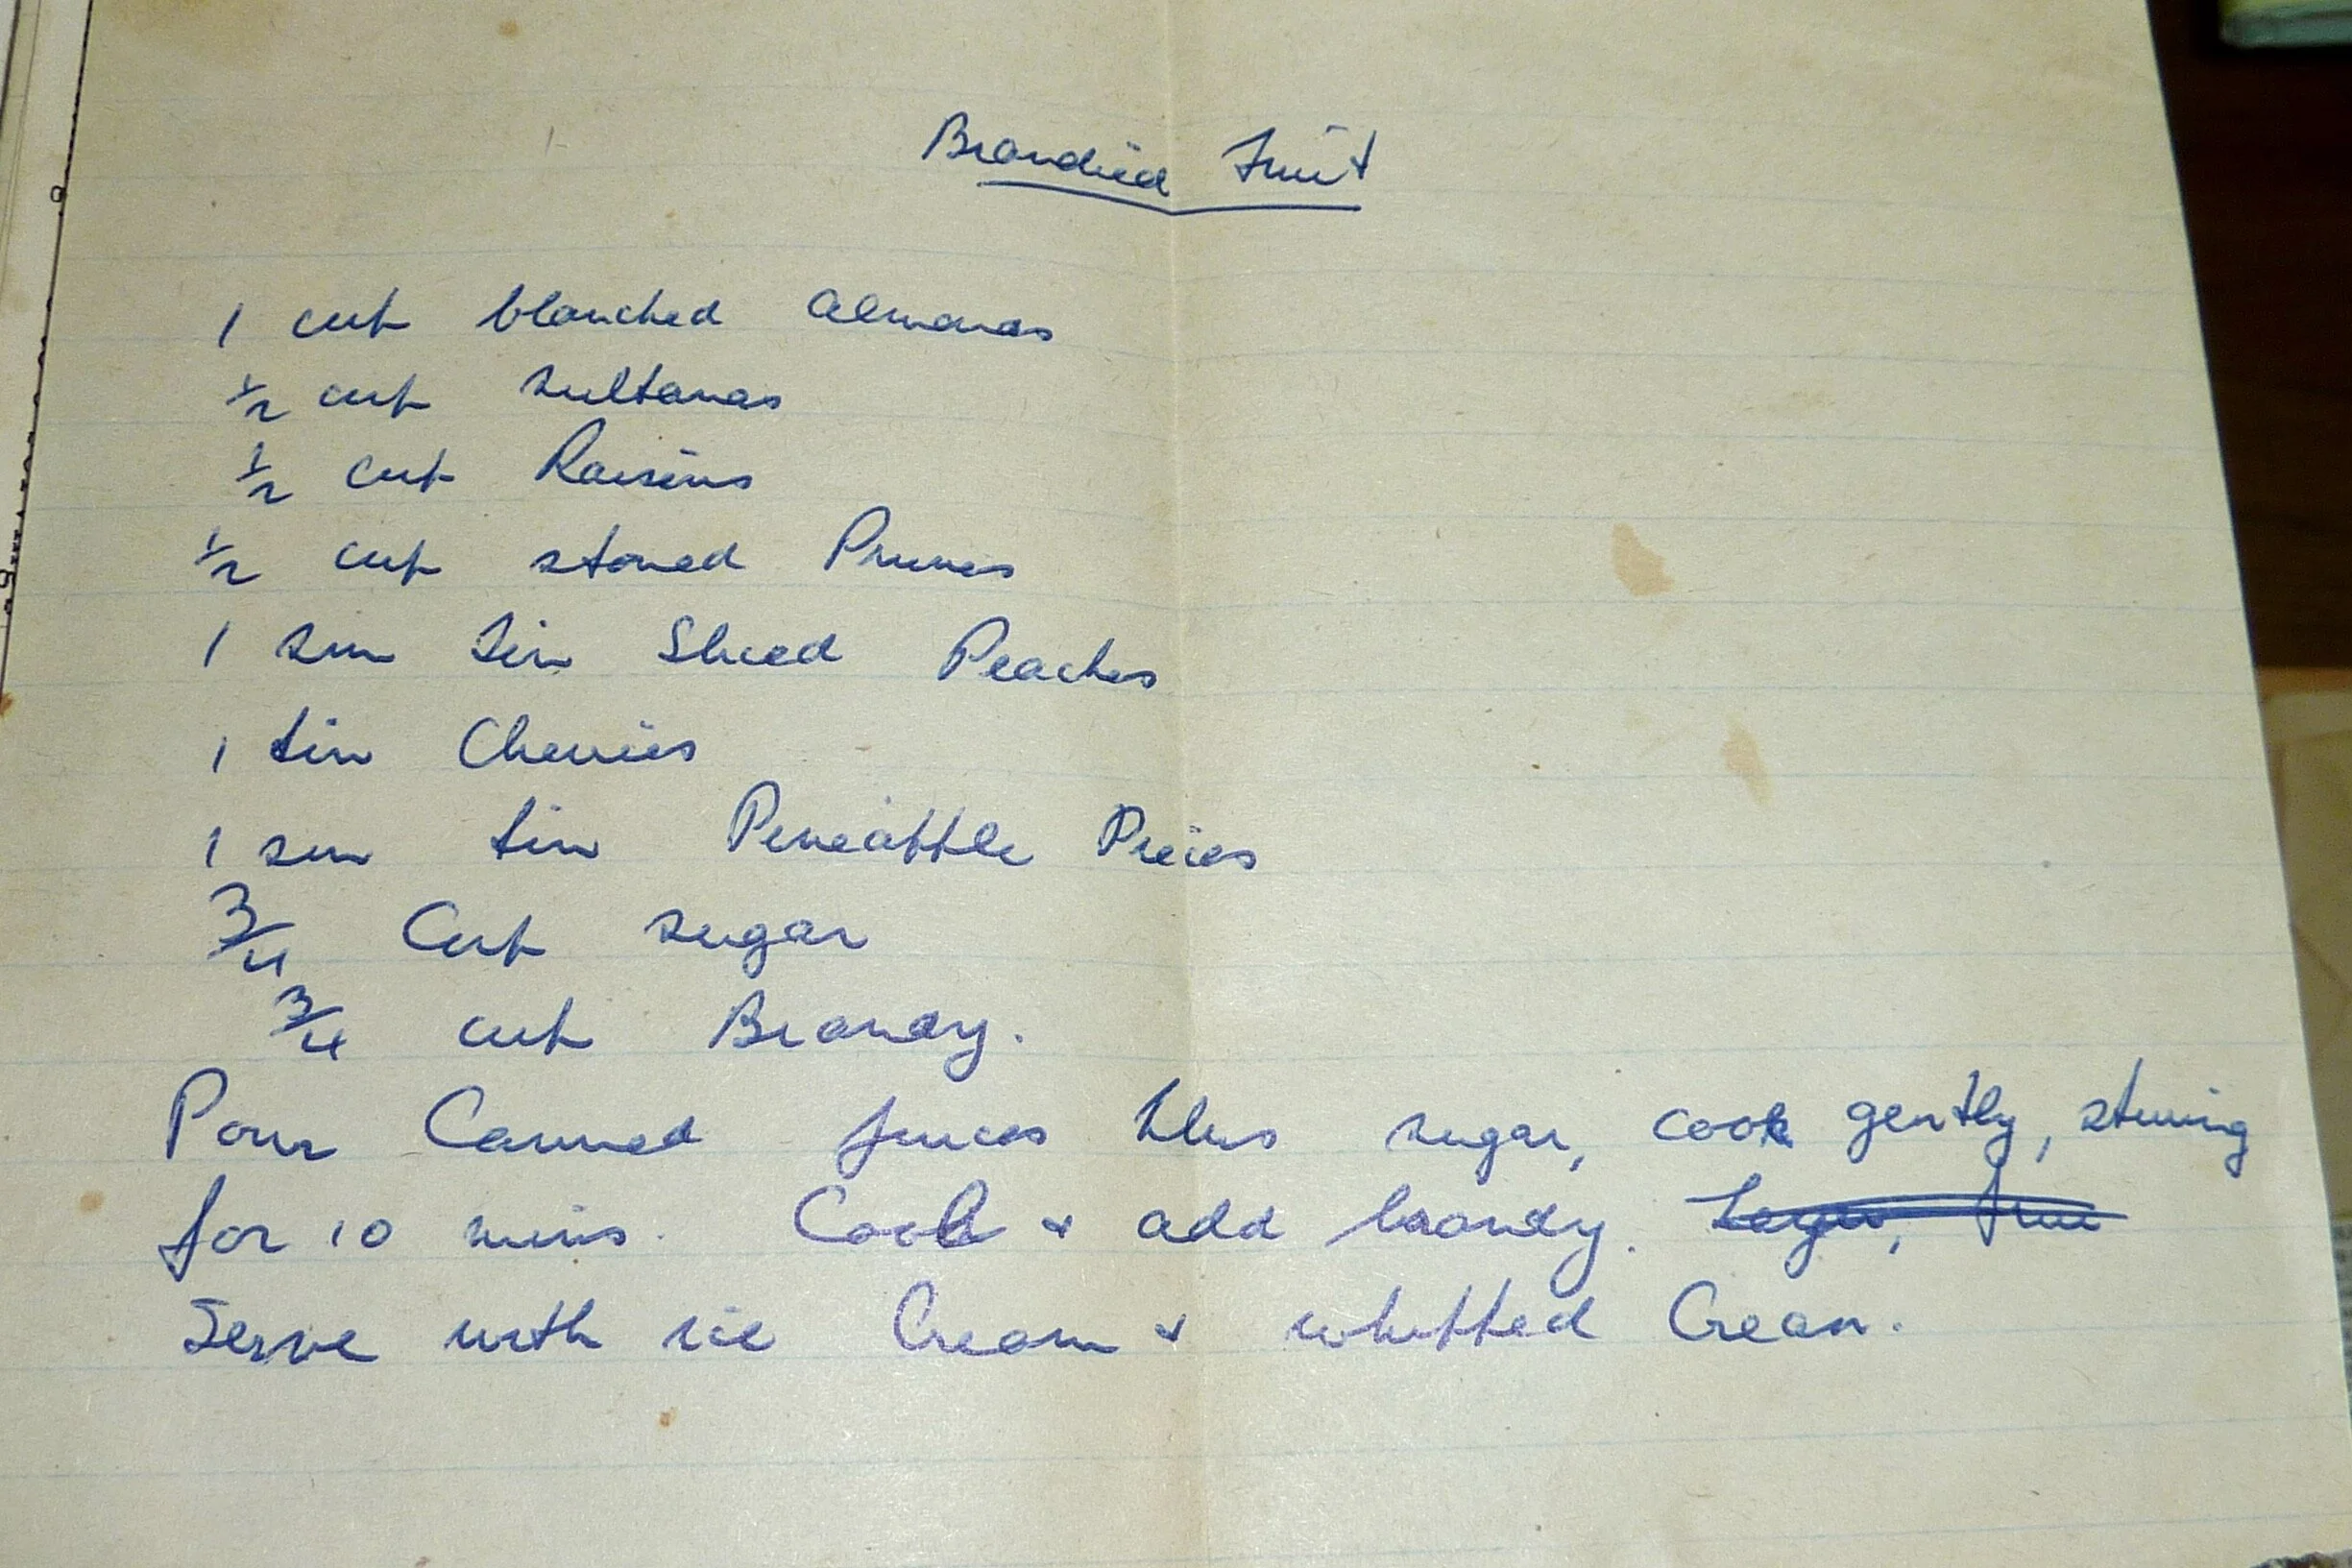 Brandied Fruit
1 cup blanched almonds
1/2 cup sultanas
1/2 cup Raisins
1/2 cup stoned Prunes
1 sm tin Sliced Peaches
1 tin Cherries
1 sm tin Pineapple Pieces
3/4 Cup sugar
3/4 cup Brandy.
Pour Canned juices plus sugar, cook gently, stirring
for 10 mins. Cool & add brandy.
Serve with ice Cream & whipped Cream.